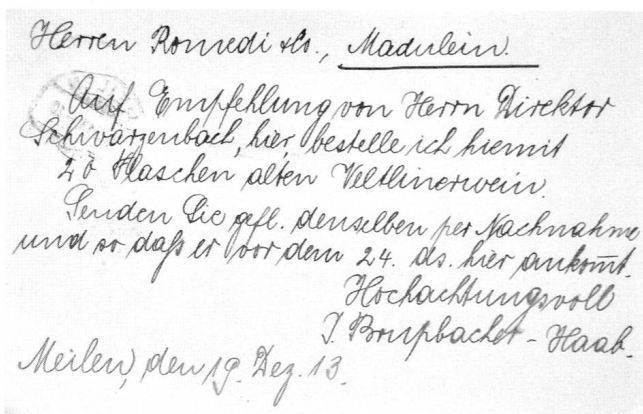 Herren Romedi & Co., Madulein.
Auf Empfehlung von Herrn Direktor
Schwarzenbach, hier, bestelle ich hiemit
20 Flaschen alten Veltlinerwein.
Senden Sie gefl. denselben per Nachnahme
und so daß er vor dem 24. ds. hier ankom̅t.
Hochachtungsvoll
J. Brupbacher-Haab.
Meilen, den 19. Dez. 13.